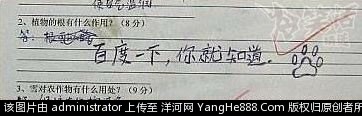 2、植物的根有什么作用？（8分）
答：
百度一下，你就知道.
3、雪对农作物有什么用处？（9分）
该图片由 administrator 上传至 洋河网 YangHe888.Com 版权归原创者所